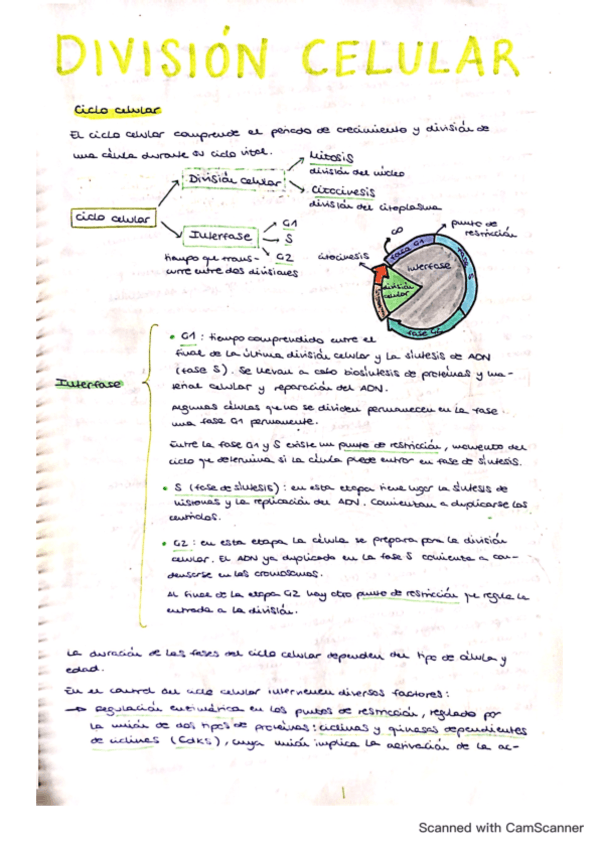 DIVISIÓN CELULAR
Ciclo celular
El ciclo celular comprende el periodo de crecimiento y división de
una célula durante su ciclo vital.
Mitosis
división del núcleo
División celular
Citocinesis
división del citoplasma
Ciclo celular
Interfase
G1
S
G2
tiempo que trans-
curre entre dos divisiones
citocinesis
punto de
restricción
fase G1
fase S
interfase
división
celular
fase G2
Interfase
• G1: tiempo comprendido entre el
final de la última división celular y la síntesis de ADN
(fase S). Se llevan a cabo biosíntesis de proteínas y ma-
terial celular y reparación del ADN.
Algunas células que no se dividen permanecen en la fase
una fase G1 permanente.
Entre la fase G1 y S existe un punto de restricción, momento del
ciclo que determina si la célula puede entrar en fase de síntesis.
• S (fase de síntesis): en esta etapa tiene lugar la síntesis de
histonas y la replicación del ADN. Comienzan a duplicarse los
centriolos.
• G2: en esta etapa la célula se prepara para la división
celular. El ADN ya duplicado en la fase S comienza a con-
densarse en los cromosomas.
Al final de la etapa G2 hay otro punto de restricción que regula la
entrada a la división.
La duración de las fases del ciclo celular dependen del tipo de célula y
edad.
En el control del ciclo celular intervienen diversos factores:
→ Regulación enzimática en los puntos de restricción, regulado por
la unión de dos tipos de proteínas: ciclinas y quinasas dependientes
de ciclinas (CdKs), cuya unión implica la activación de la ac-
1
Scanned with CamScanner